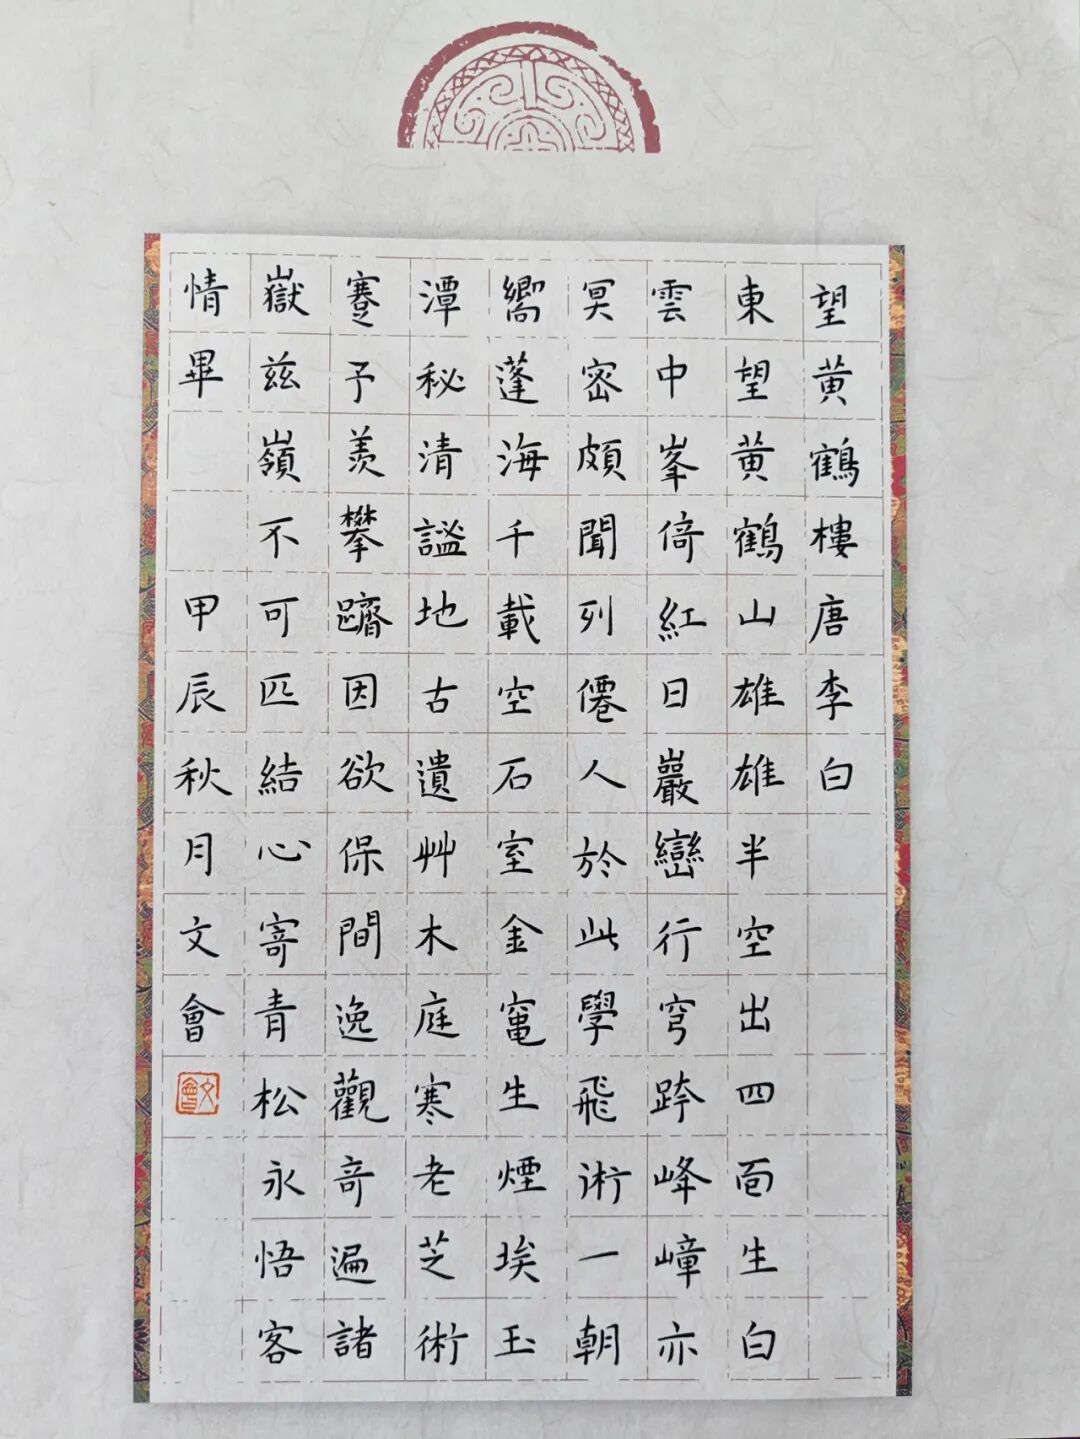 望黄鶴樓唐李白
東望黄鶴山雄雄半空出四面生白
雲中峯倚紅日巖巒行穹跨峰嶂亦
冥密頗聞列僊人於此學飛術一朝
嚮蓬海千載空石室金竈生煙埃玉
潭秘清謐地古遺艸木庭寒老芝術
蹇予羡攀躋因欲保間逸觀奇遍諸
嶽兹嶺不可匹結心寄青松永悟客
情畢 甲辰秋月文會
文會